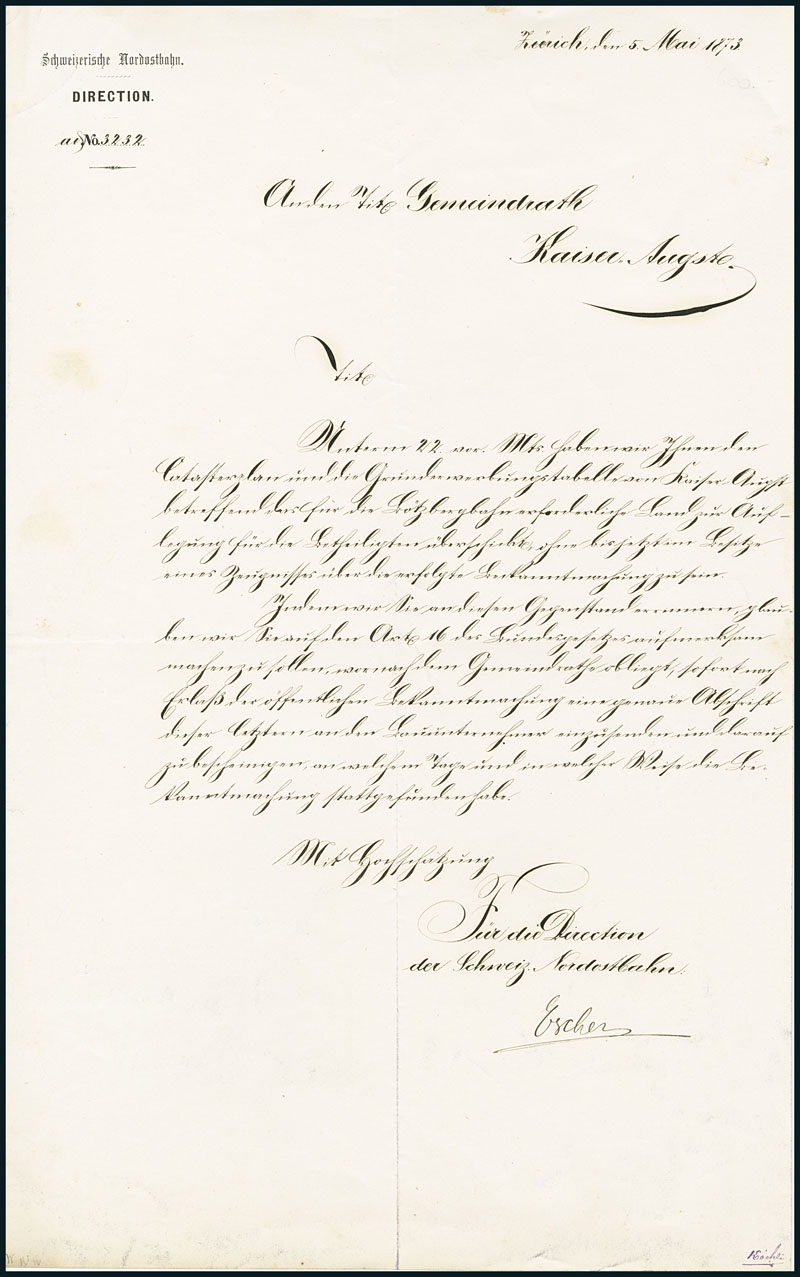 Zürich, den 5. Mai 1873.
Schweizerische Nordostbahn.
DIRECTION.
ad No. 3232.
An den Tit. Gemeindrath
Kaiser-Augst.
Tit.
Unterm 22. vor. Mts. haben wir Ihnen den
Catasterplan und die Grunderwerbungstabelle von Kaiser-Augst
betreffend das für die Bötzbergbahn erforderliche Land zur Auf-
legung für die Betheiligten überschickt, ohne bis jetzt im Besitze
eines Zeugnisses über die erfolgte Bekanntmachung zu sein.
Indem wir Sie an diesen Gegenstand erinnern, glau-
ben wir Sie auf den Art. 16 des Bundesgesetzes aufmerksam
machen zu sollen, wornach dem Gemeindrathe obliegt, sofort nach
Erlaß der öffentlichen Bekanntmachung eine genaue Abschrift
dieser letztern an den Bauunternehmer einzusenden und darauf
zu bescheinigen, an welchem Tage und in welcher Weise die Be-
kanntmachung stattgefunden habe.
Mit Hochschätzung
Für die Direction
der Schweiz. Nordostbahn:
Escher